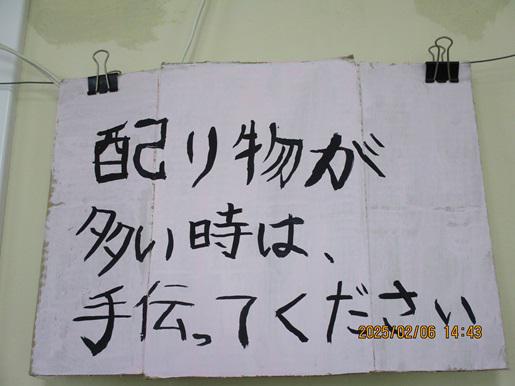 配り物が
多い時は、
手伝ってください
2025/02/06 14:43